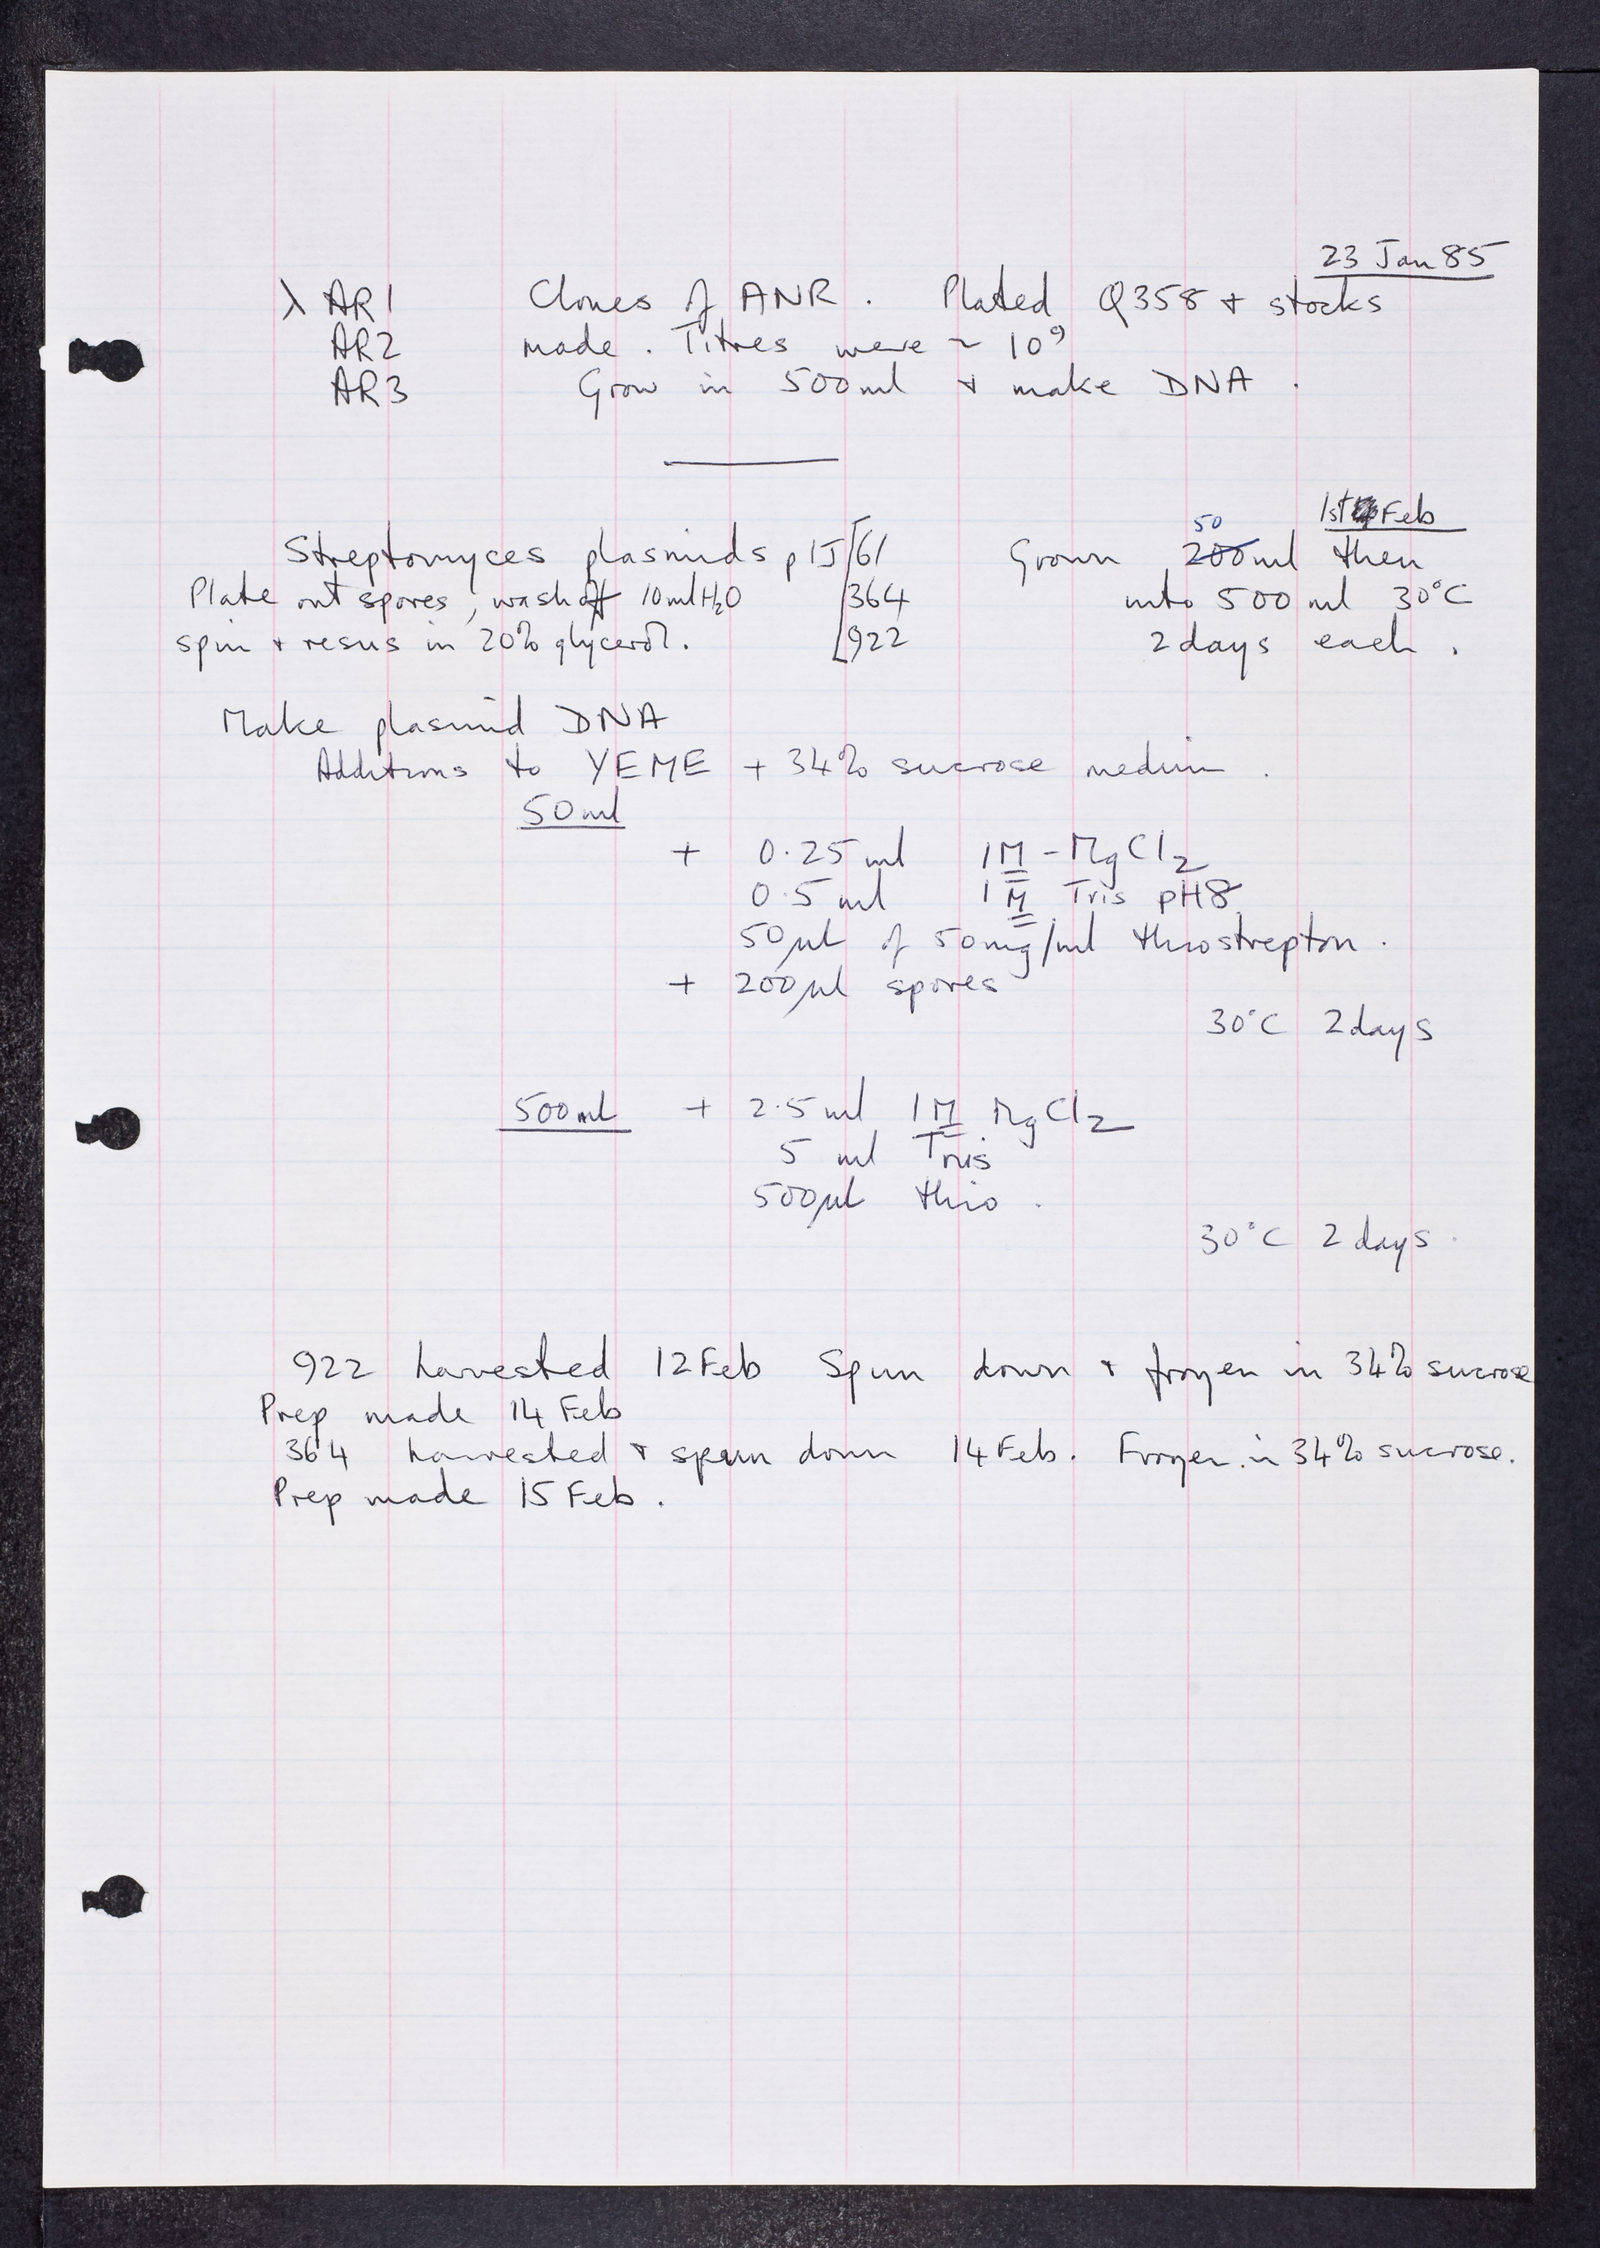 23 Jan 85
λ AR1 Clones of ANR. Plated Q358 + stocks
AR2 made. Titres were ~ 10⁹
AR3 Grow in 500ml + make DNA.
1st Feb
50
Streptomyces plasmids pIJ 61 Grown 200ml then
Plate out spores, wash off 10ml H₂O 364 into 500 ml 30°C
spin + resus in 20% glycerol. 922 2 days each.
Make plasmid DNA
Additions to YEME + 34% sucrose medium.
50ml
+ 0.25 ml 1M - MgCl₂
0.5 ml 1M Tris pH8
50µl of 50mg/ml thiostrepton.
+ 200µl spores
30°C 2 days
500ml + 2.5 ml 1M MgCl₂
5 ml Tris
500µl thio.
30°C 2 days.
922 harvested 12 Feb Spun down + frozen in 34% sucrose
Prep made 14 Feb
364 harvested + spun down 14 Feb. Frozen in 34% sucrose.
Prep made 15 Feb.